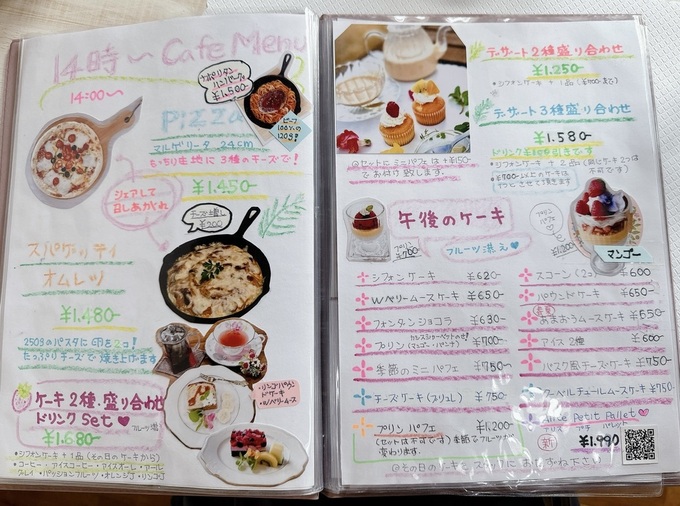 14時〜 Cafe Menu
14:00〜
ナポリタン
ハンバーグ
¥1,500
ビーフ
100%の
120g!
PIZZA
マルゲリータ 24cm
もっちり生地に3種のチーズで!
シェアして
召しあがれ
¥1,450-
チーズ増し
¥200
スパゲッティ
オムレツ
¥1,480-
250gのパスタに卵を2コ!
たっぷりチーズで焼き上げます
ケーキ2種盛り合わせ
ドリンクSet♥
フルーツ添
¥1,680-
・シフォンケーキ+1品(その日のケーキから)
・コーヒー・アイスコーヒー・アイスオーレ・アールグレイ・パッションフルーツ・オレンジJ・リンゴJ
・リンゴパウンドケーキ
デザート2種盛り合わせ
¥1,250-
・シフォンケーキ+1品
デザート3種盛り合わせ
¥1,580-
ドリンク¥100引きです
・シフォンケーキ+2品
◎セットにミニパフェは+¥150-
でお付け致します。
午後のケーキ
フルーツ添え♥
プリン
¥700-
プリン
パフェ
¥1,200
マンゴー
シフォンケーキ ¥620-
Wベリームースケーキ ¥650-
フォンダンショコラ ¥680-
プリン(マンゴー・バナナ) ¥700-
季節のミニパフェ ¥750-
チーズケーキ(スリール) ¥750-
プリンパフェ ¥1,200
(セットは不可です)季節でフルーツが
変わります。
スコーン(2コ) ¥600
パウンドケーキ ¥650-
あまおうムースケーキ ¥650
アイス2種 ¥600
バスク風チーズケーキ ¥750
ムースケーキ ¥750
Alice Petit Pallet♥
アリス プチ パレット
新 ¥1,990
◎その日のケーキをスタッフにおたずね下さい